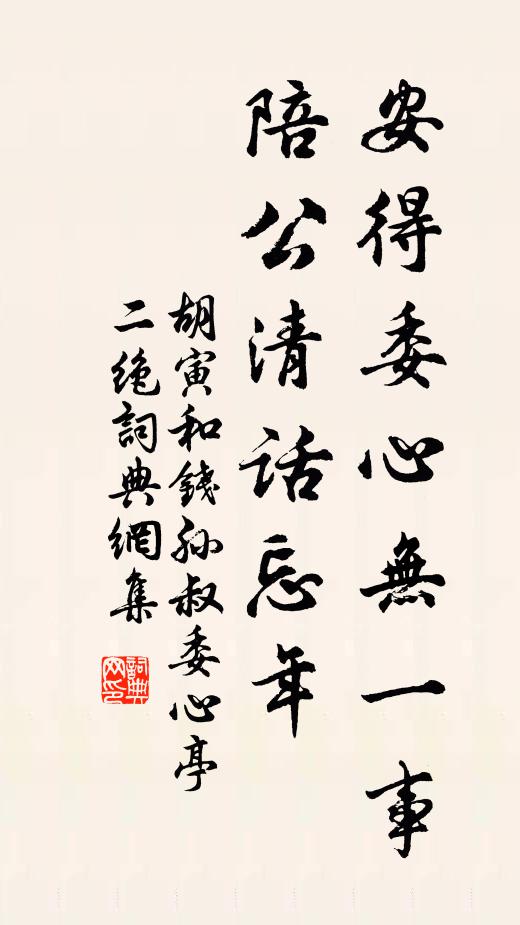 安得委心無一事
陪公清話忘年
胡寅和錢孙叔委心亭
二絶詞典網集
詞典網印